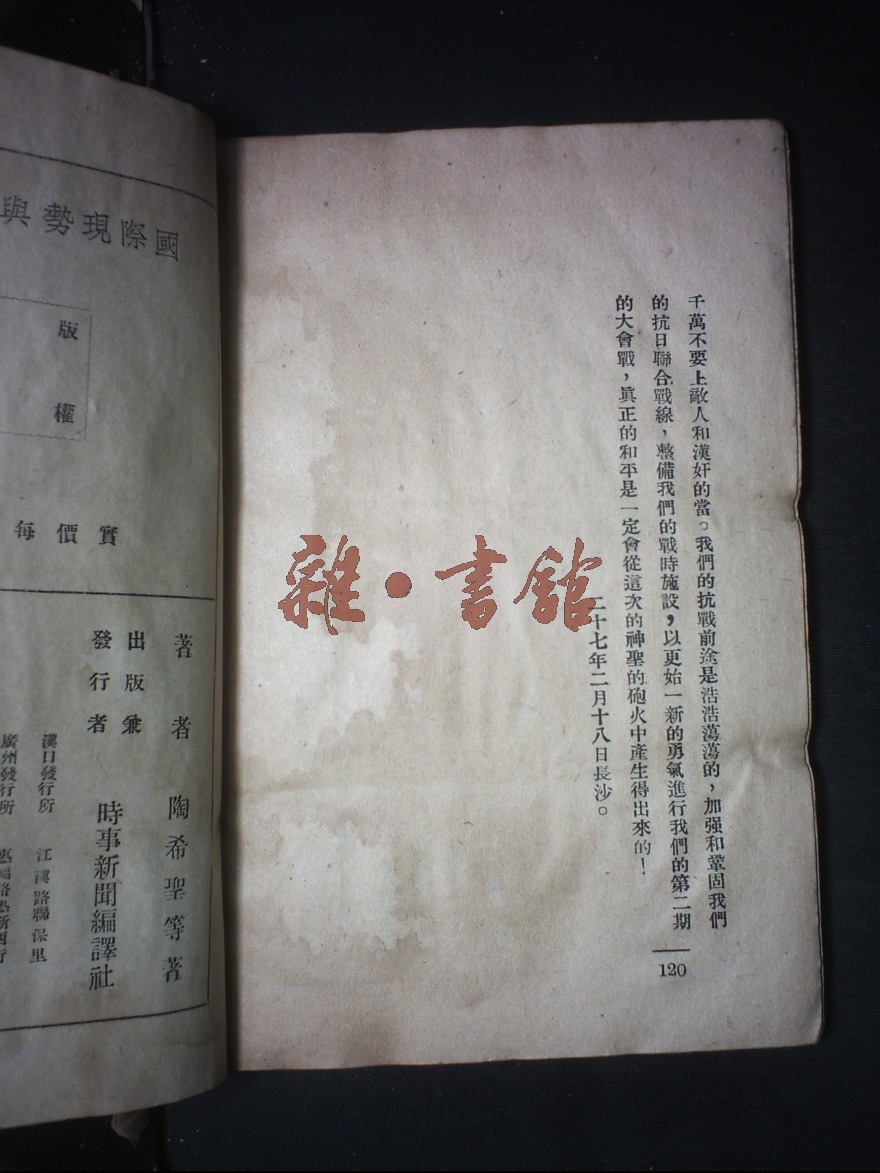 千萬不要上敵人和漢奸的當。我們的抗戰前途是浩浩蕩蕩的，加强和鞏固我們
的抗日聯合戰線，整備我們的戰時施設，以更始一新的勇氣進行我們的第二期
的大會戰，眞正的和平是一定會從這次的神聖的砲火中產生得出來的！
二十七年二月十八日長沙。
120
雜·書館
國際現勢與
版權
實價每
著者 陶希聖等著
出版兼
發行者 時事新聞編譯社
漢口發行所 江漢路聯保里
廣州發行所